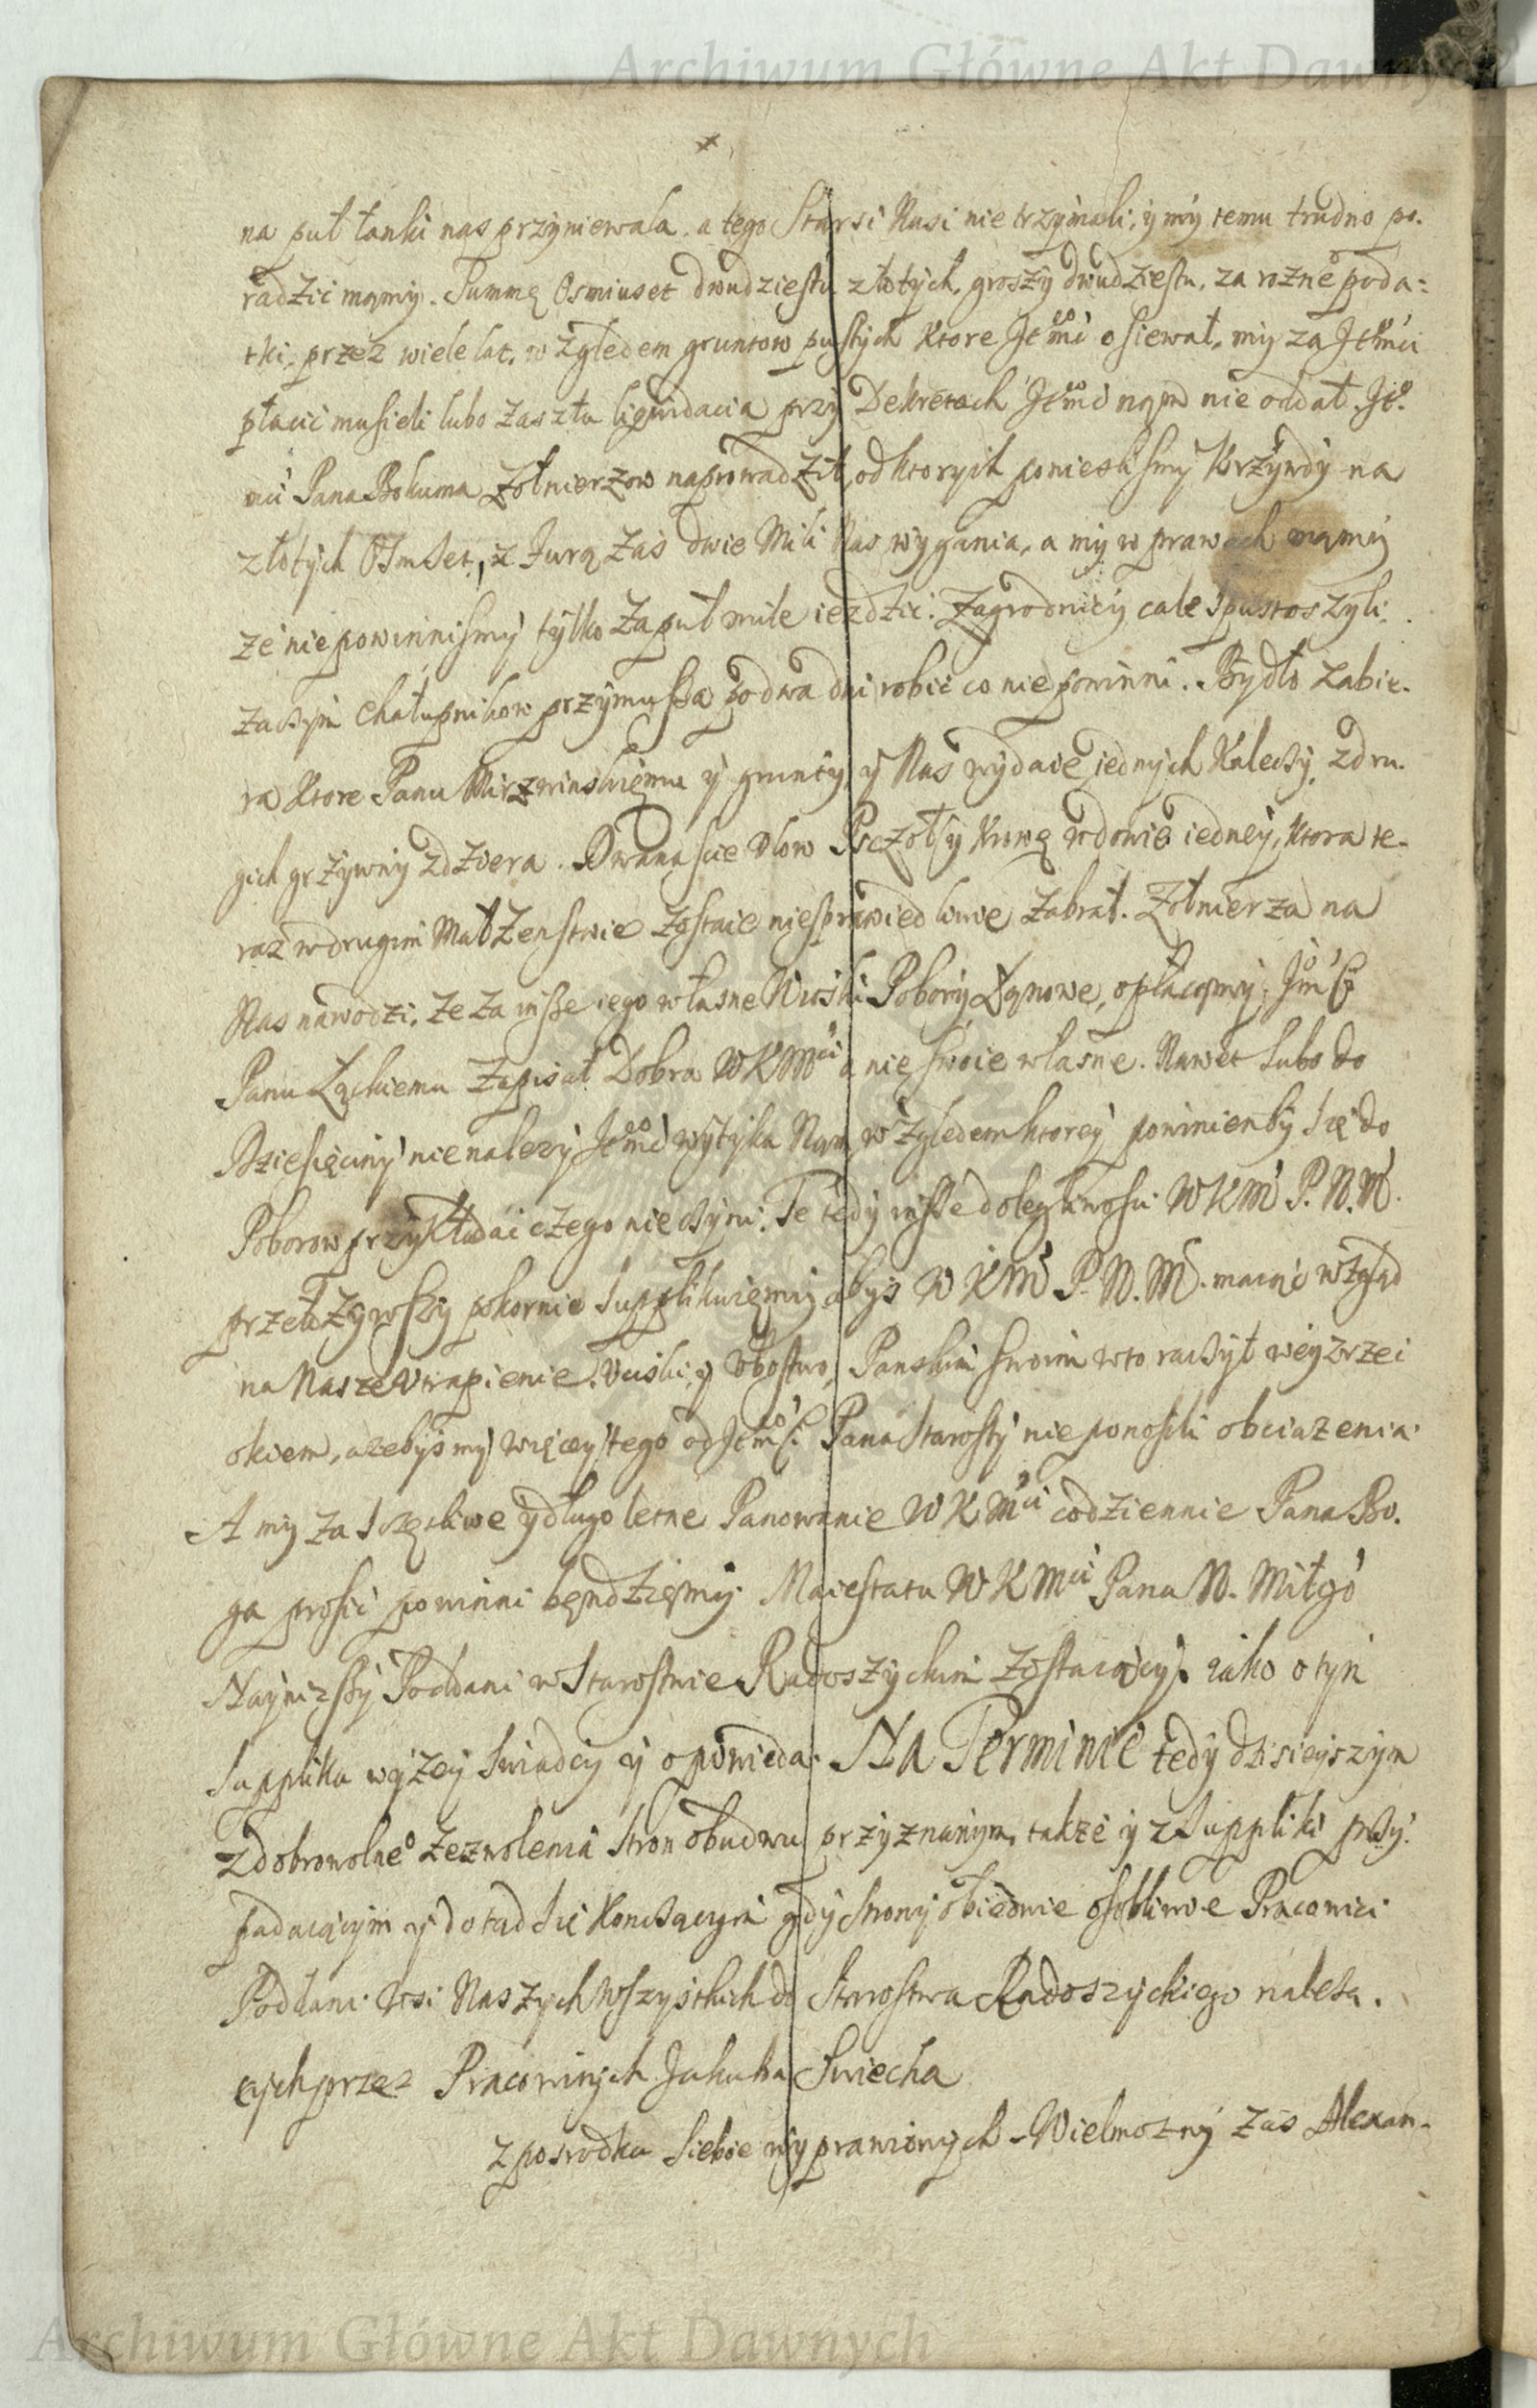 Archiwum Główne Akt Dawnych
na puł łanki nas przyniewala, a tego Starsi Nasi nie trzymali, y my temu trudno po-
radzić mamy. Summę Osmiuset dwudziestu złotych, groszy dwudziestu, za rozne poda-
tki, przez wiele lat, względem gruntow pustych ktore Jemć osiewał, my za Jemći
płacić musieli lubo zaszła liquidacia przy Dekretach Jemć nąm nie oddał. Je
mć Pana Bokuma Zołnierzow naprowadził, od ktorych ponieslismy Krzywdy na
złotych Osmset, z Furą zaś dwie Mili Nas wygania, a my w prawach mąmy
że nie powinnismy tylko za puł mile iezdzić. Zagrodnicy cale spustoszyli,
zaczym chałupnikow przymusza po dwa dni robić co nie powinni. Bydło zabie-
ra ktore Panu Mirzwinskięmu y grunty, y Nas wydaie jednych Kaleczy, z dru-
gich grzywny zdziera. Dwanascie Ulow Pszczoł y Krowę wdowie iedney, ktora te-
raz w drugim Małżenstwie zostaie niesprawiedliwie zabrał. Zołnierza na
Nas nawodzi, że za insze iego własne Wioski Pobory Łąnowe, opłacąmy, Jmć
Panu Łąckiemu zapisał Dobra WKMci a nie swoie własne. Nawet lubo do
Dziesięciny nie nalezy Jemć wytyka Nąm, względem ktorey powinienby się do
Poborow przykładać czego nie czyni. Te tedy insze dolegliwosci WKM P. N. M.
przełozywszy pokornie supplikuięmy abyś W KM P. N. M. maiąc wzgląd
na Nasze Utrapienie, Uciski, y Ubostwo, Panskim swoim w to raczył weyzrzeć
okiem, azebysmy więcey tego od Jemści Pana Starosty nie ponosili obciazenia.
A my za szczęsliwe y długo letne Panowanie W K Mci codziennie Pana Bo-
ga prosić powinni będzięmy. Maiestatu W K Mci Pana N. Miłgo
Nayniższy Poddani w Starostwie Radoszyckim zostaiący. iako o tym
Supplika wyżey swiadczy y opowieda. Na Terminie tedy dzisieyszym
z dobrowolne zezwolenia stron obudwu przyznanym, takze y z Suppliki przy-
padaiącym y dotąd się konczącym gdy strony obiedwie osobliwie Pracowici
Poddani Wsi Naszych wszystkich do Starostwa Radoszyckiego należą-
cych przez Pracowitych Jakuba Swiecha
z posrodku siebie wyprawionych - Wielmozny zaś Alexan-
Archiwum Główne Akt Dawnych